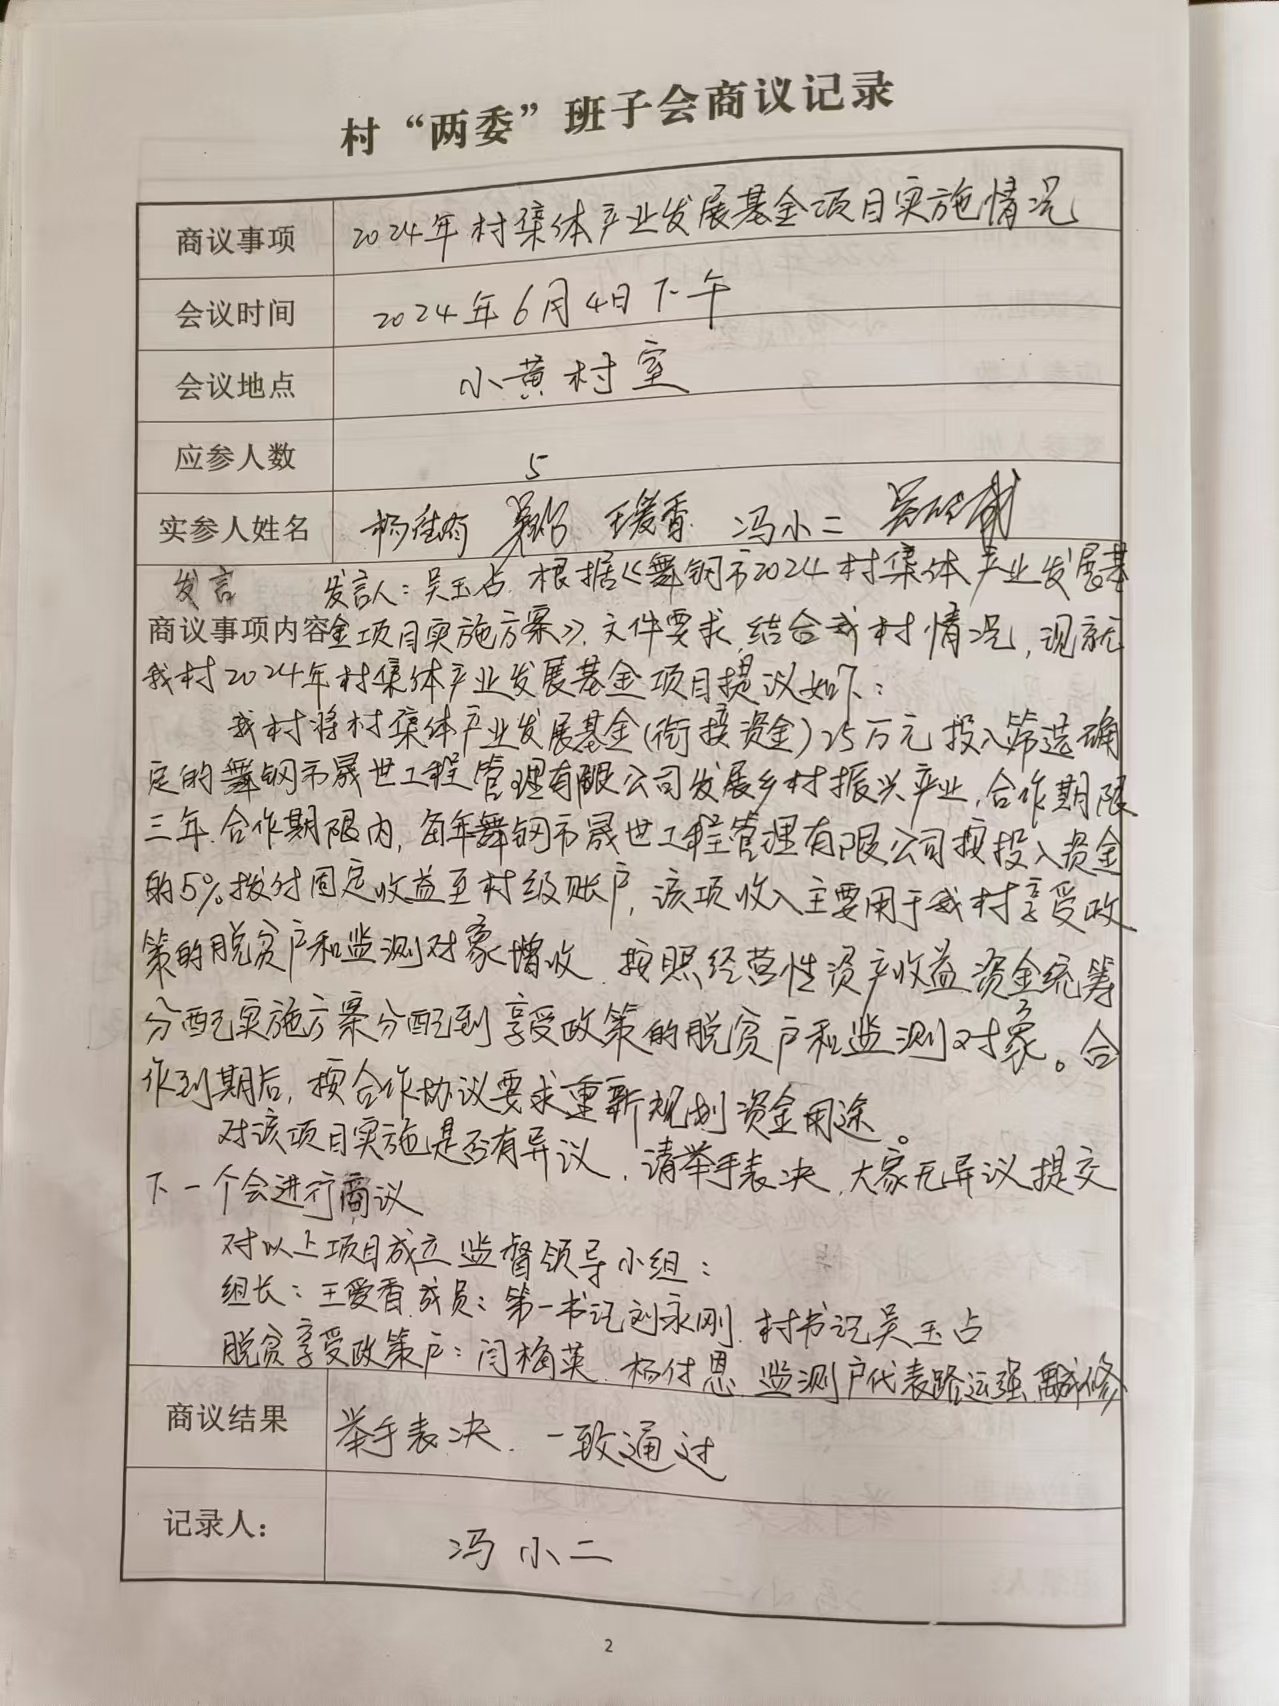 村“两委”班子会商议记录
商议事项 2024年村集体产业发展基金项目实施情况
会议时间 2024年6月4日下午
会议地点 小黄村室
应参人数 5
实参人姓名 王爱香 冯小二
发言 发言人：吴玉占.根据《舞钢市2024村集体产业发展基
商议事项内容 金项目实施方案》.文件要求,结合我村情况,现就
我村2024年村集体产业发展基金项目提议如下：
我村将村集体产业发展基金(衔接资金)25万元投入筛选确
定的舞钢市晟世工程管理有限公司发展乡村振兴产业,合作期限
三年.合作期限内,每年舞钢市晟世工程管理有限公司按投入资金
的5%拨付固定收益至村级账户,该项收入主要用于我村享受政
策的脱贫户和监测对象增收.按照经营性资产收益资金统筹
分配实施方案分配到享受政策的脱贫户和监测对象。合
作到期后,按合作协议要求重新规划资金用途。
对该项目实施是否有异议,请举手表决,大家无异议提交
下一个会进行商议
对以上项目成立监督领导小组：
组长：王爱香.成员：第一书记刘永刚.村书记吴玉占
脱贫享受政策户：闫梅英.杨付恩.监测户代表路运强
商议结果 举手表决.一致通过
记录人： 冯小二
2